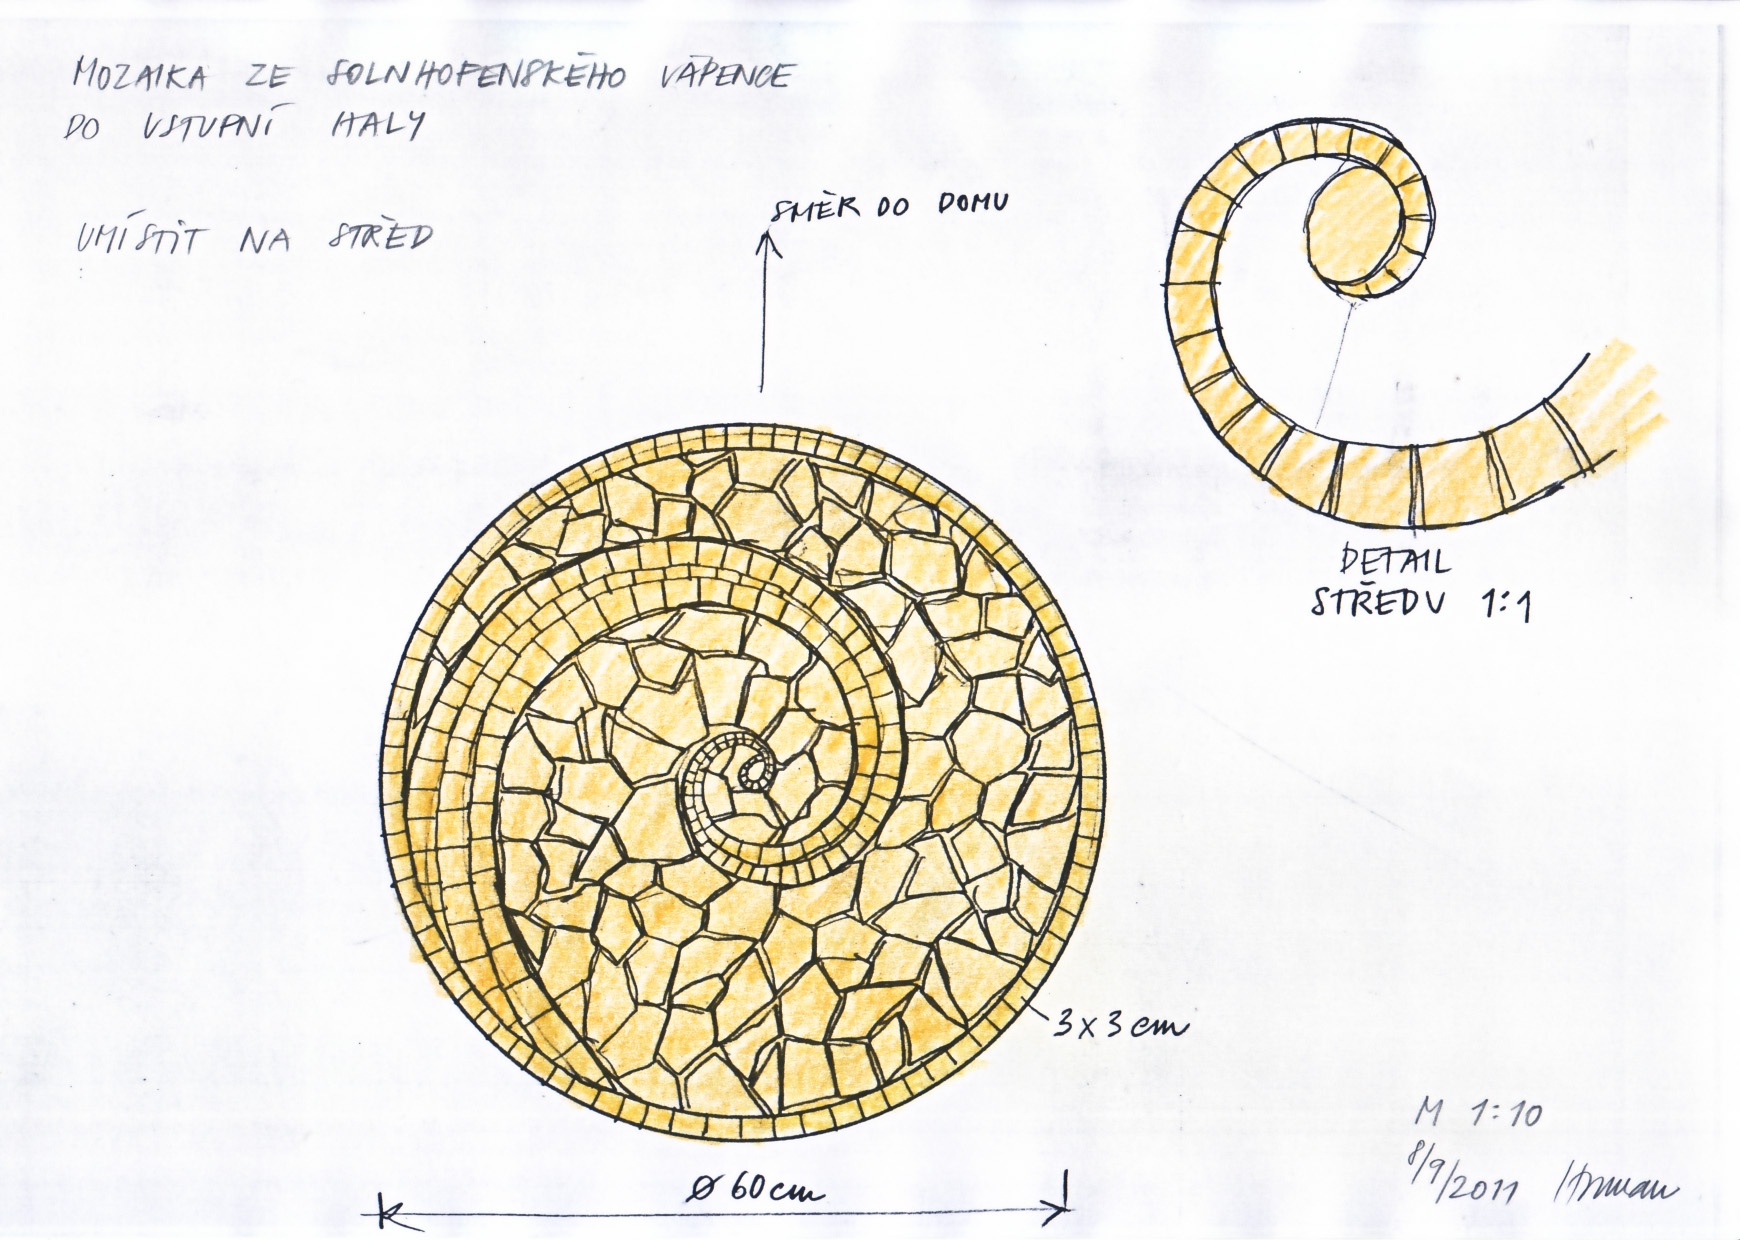 MOZAIKA ZE SOLNHOFENSKÉHO VÁPENCE
DO VSTUPNÍ HALY
UMÍSTIT NA STŘED
SMĚR DO DOMU
DETAIL
STŘEDU 1:1
3x3cm
Ø 60cm
M 1:10
8/9/2011